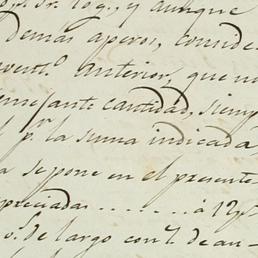 y aunque
demas aperos, conside
Anterior, que no
cantidad, siemp
pr. la suma indicada
se pone en el presente
preciadas . . . . . . . . á 12 ps
vs. de largo con 1. de an-